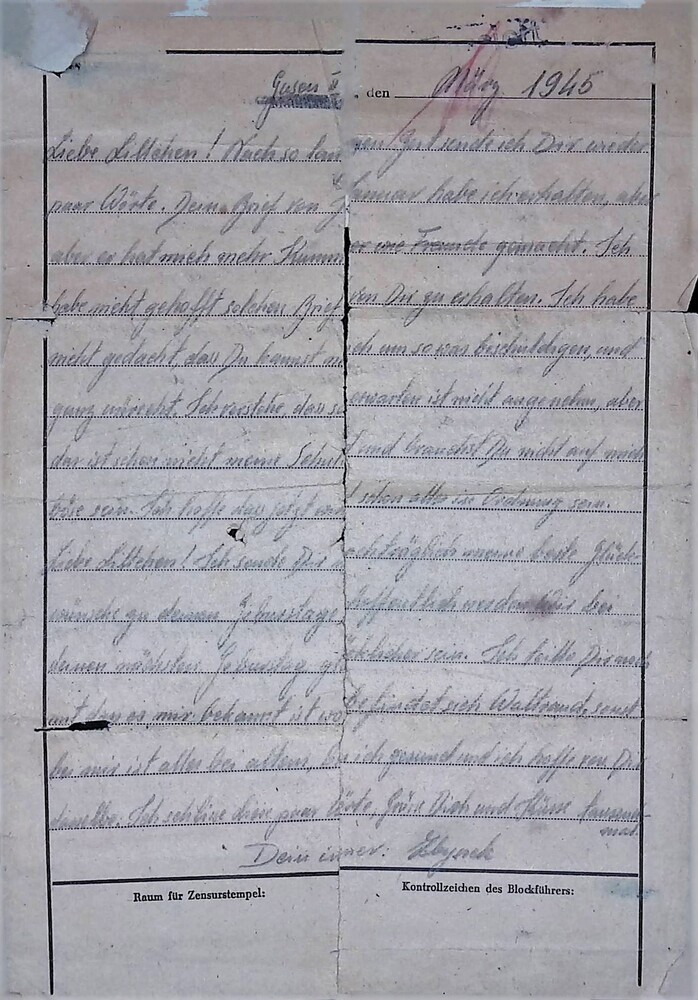 Gusen II, den März 1945
Liebe Littchen! Nach so langen Zeit sende ich Dir wieder
paar Wörte. Deine Brief von Januar habe ich erhalten, aber
aber er hat mich mehr Kummer wie Freunde gemacht. Ich
habe nicht gehofft solchen Brief von Dir zu erhalten. Ich habe
nicht gedacht, das Du kannst mich um so was bischuldigen, und
ganz unrecht. Ich verstehe, das so erwarten ist nicht angenehm, aber
das ist schon nicht meine Schult und brauchst Du nicht auf mich
böse sein. Ich hoffe das jetzt wird schon alls in Ordnung sein.
Liebe Littchen! Ich sende Dir nachträglich meine beste Glück-
wünsche zu deinen Geburstage hoffentlich werden Wir bei
deinen nächsten Geburstag glücklicher sein. Ich teille Dir noch
mit das es mir bekannt ist wo befindet sich Waltraud, sonst
bei mir ist alles bei alten, bin ich gesund und ich hoffe von Dir
dasselbe. Ich schlise diese paar Wörte, Grüse Dich und Küsse tausend-
mal.
Dein imer: Zbyszek
Raum für Zensurstempel:
Kontrollzeichen des Blockführers: